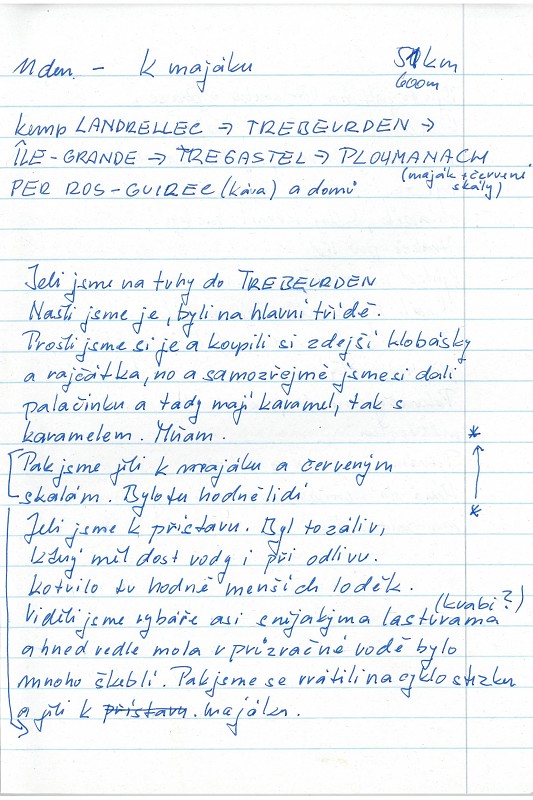 11 den. - K majáku 51km
600m
kemp LANDRELLEC → TREBEURDEN →
ÎLE-GRANDE → TREGASTEL → PLOUMANACH
(maják + červené skály)
PER ROS-GUIREC (káva) a domů
Jeli jsme na trhy do TREBEURDEN
Našli jsme je, byli na hlavní třídě.
Prošli jsme si je a koupili si zdejší klobásky
a rajčátka, no a samozřejmě jsme si dali
palačinku a tady mají karamel, tak s
karamelem. Mňam. *
Pak jsme jeli k majáku a červeným
skalám. Bylo tu hodně lidí *
Jeli jsme k přístavu. Byl to záliv,
který měl dost vody i při odlivu.
Kotvilo tu hodně menších loděk.
(krabi?)
Viděli jsme rybáře asi s nějakýma lasturama
a hned vedle mola v průzračné vodě bylo
mnoho škeblí. Pak jsme se vrátili na cyklostezku
a jeli k přístavu. majáku.